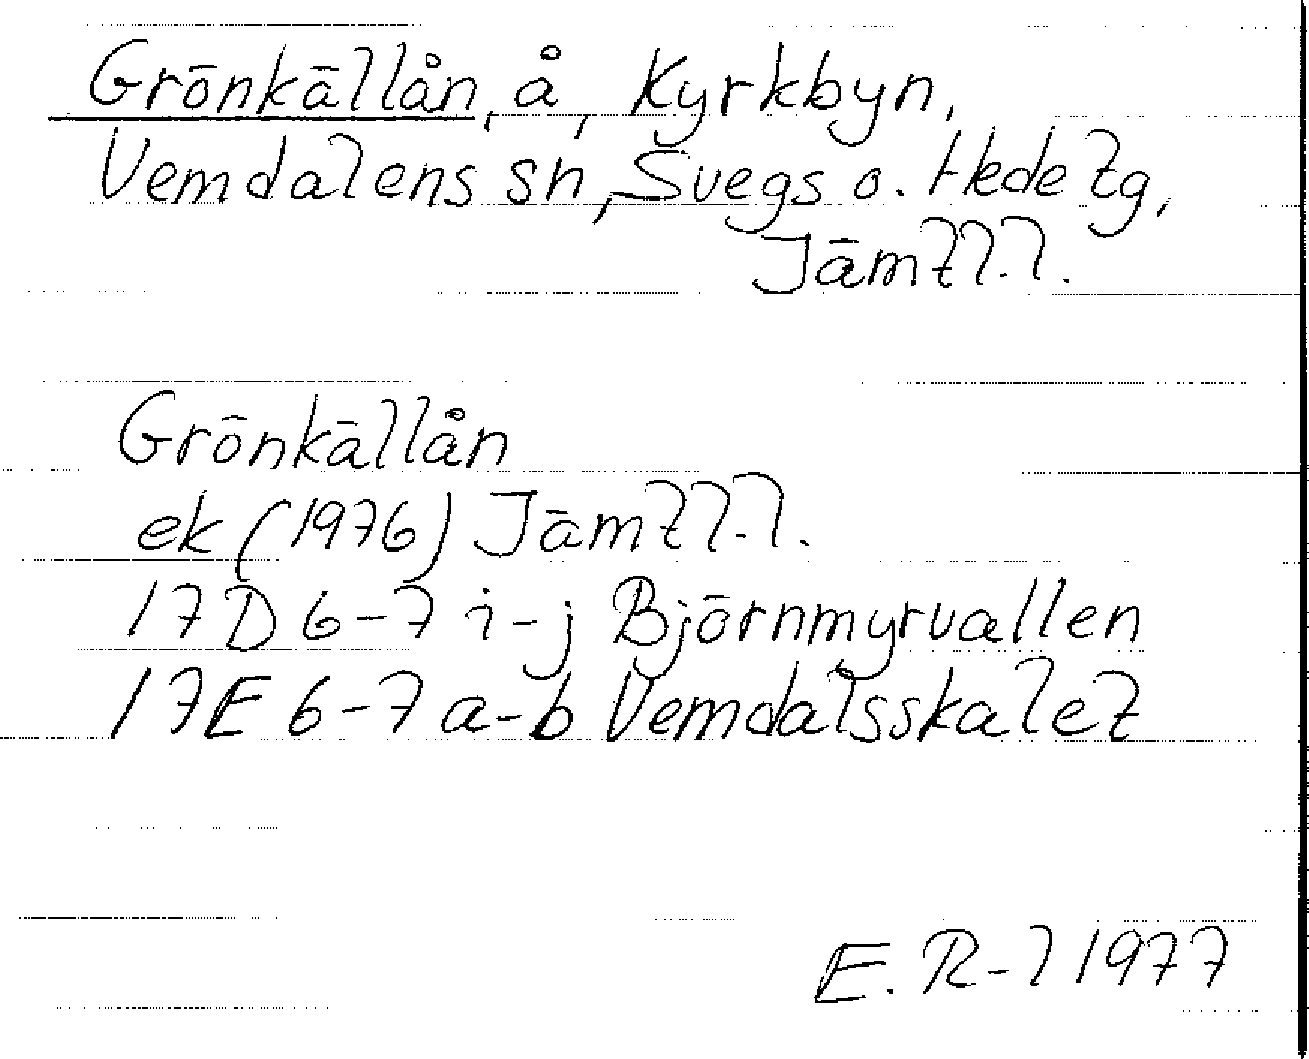 Grönkällån, å, Kyrkbyn,
Vemdalens sn, Svegs o. Hede tg,
Jämtl.l.
Grönkällån
ek (1976) Jämtl.l.
17D 6-7 i-j Björnmyrvallen
17E 6-7 a-b Vemdalsskalet
E. R-l 1977